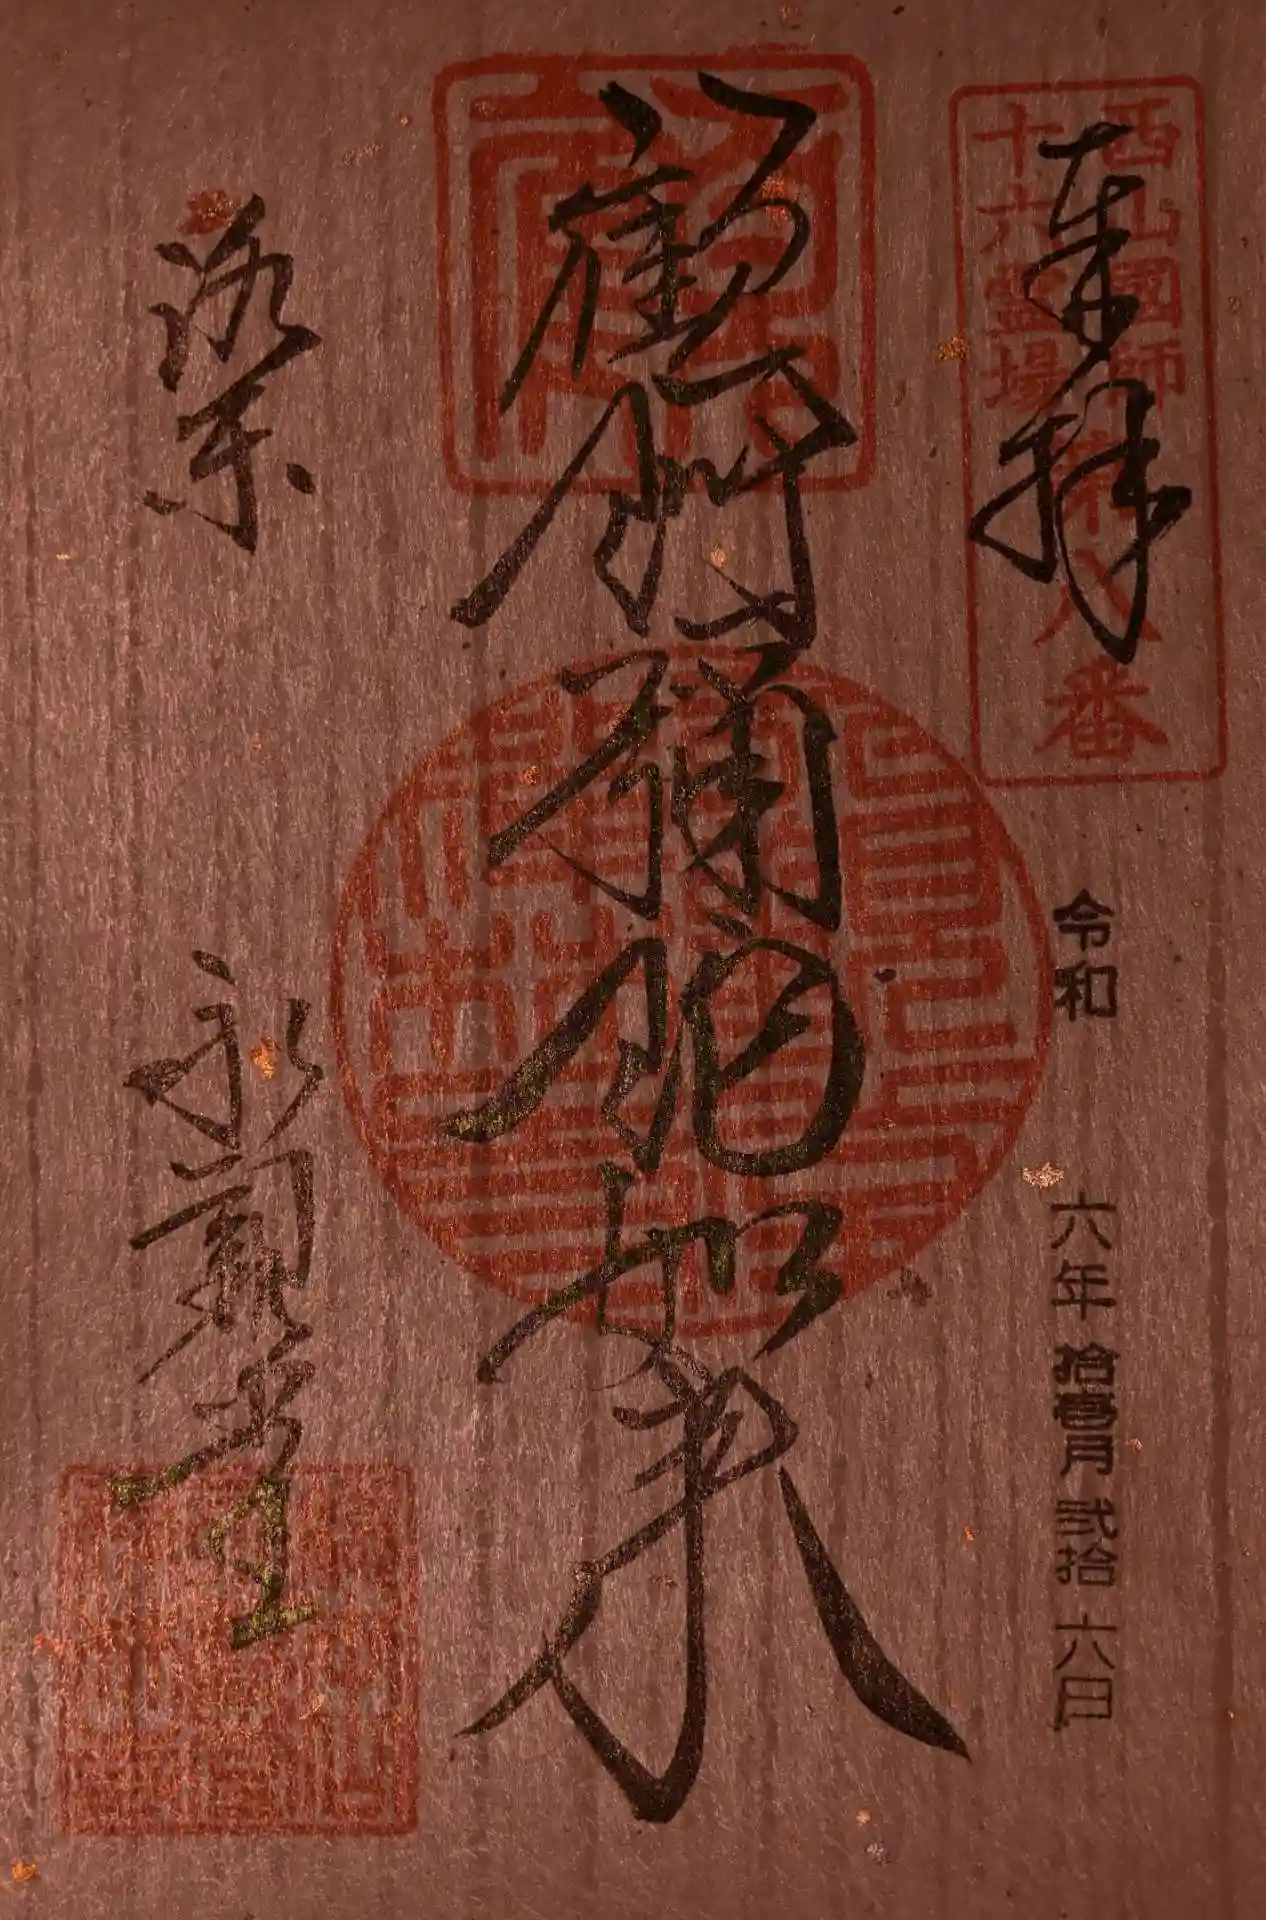 奉拝
西山國師
十六霊場
第八番
令和 六年 拾壹月 弐拾六日
顧阿彌陀如来
洛東 永観堂